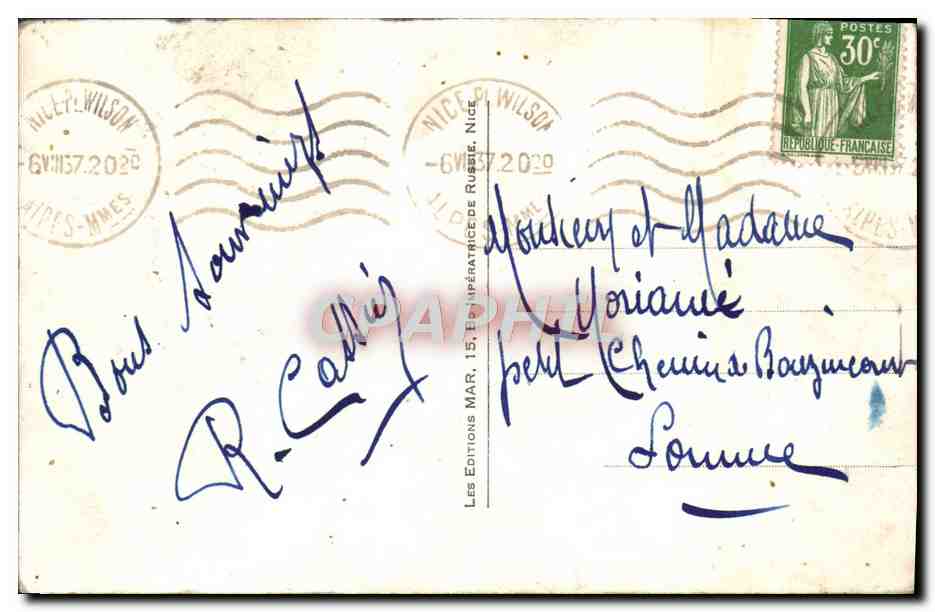 NICE-PL WILSON
-6 VIII 37. 20 20
ALPES-MMES
NICE-PL WILSON
-6 VIII 37. 20 20
POSTES
30c
REPUBLIQUE-FRANÇAISE
Bons souvenirs
R. Cassiès
LES EDITIONS MAR, 15, BD IMPÉRATRICE DE RUSSIE, NICE
CPAPHIL
Monsieur et Madame
petit Chemin de Bouzincourt
Somme